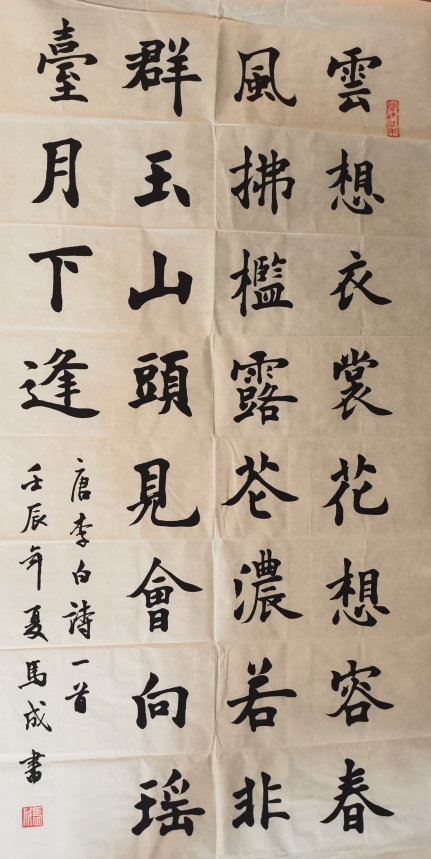 雲想衣裳花想容春
風拂檻露芲濃若非
群玉山頭見會向瑶
臺月下逢
唐李白詩一首
壬辰年夏馬成書